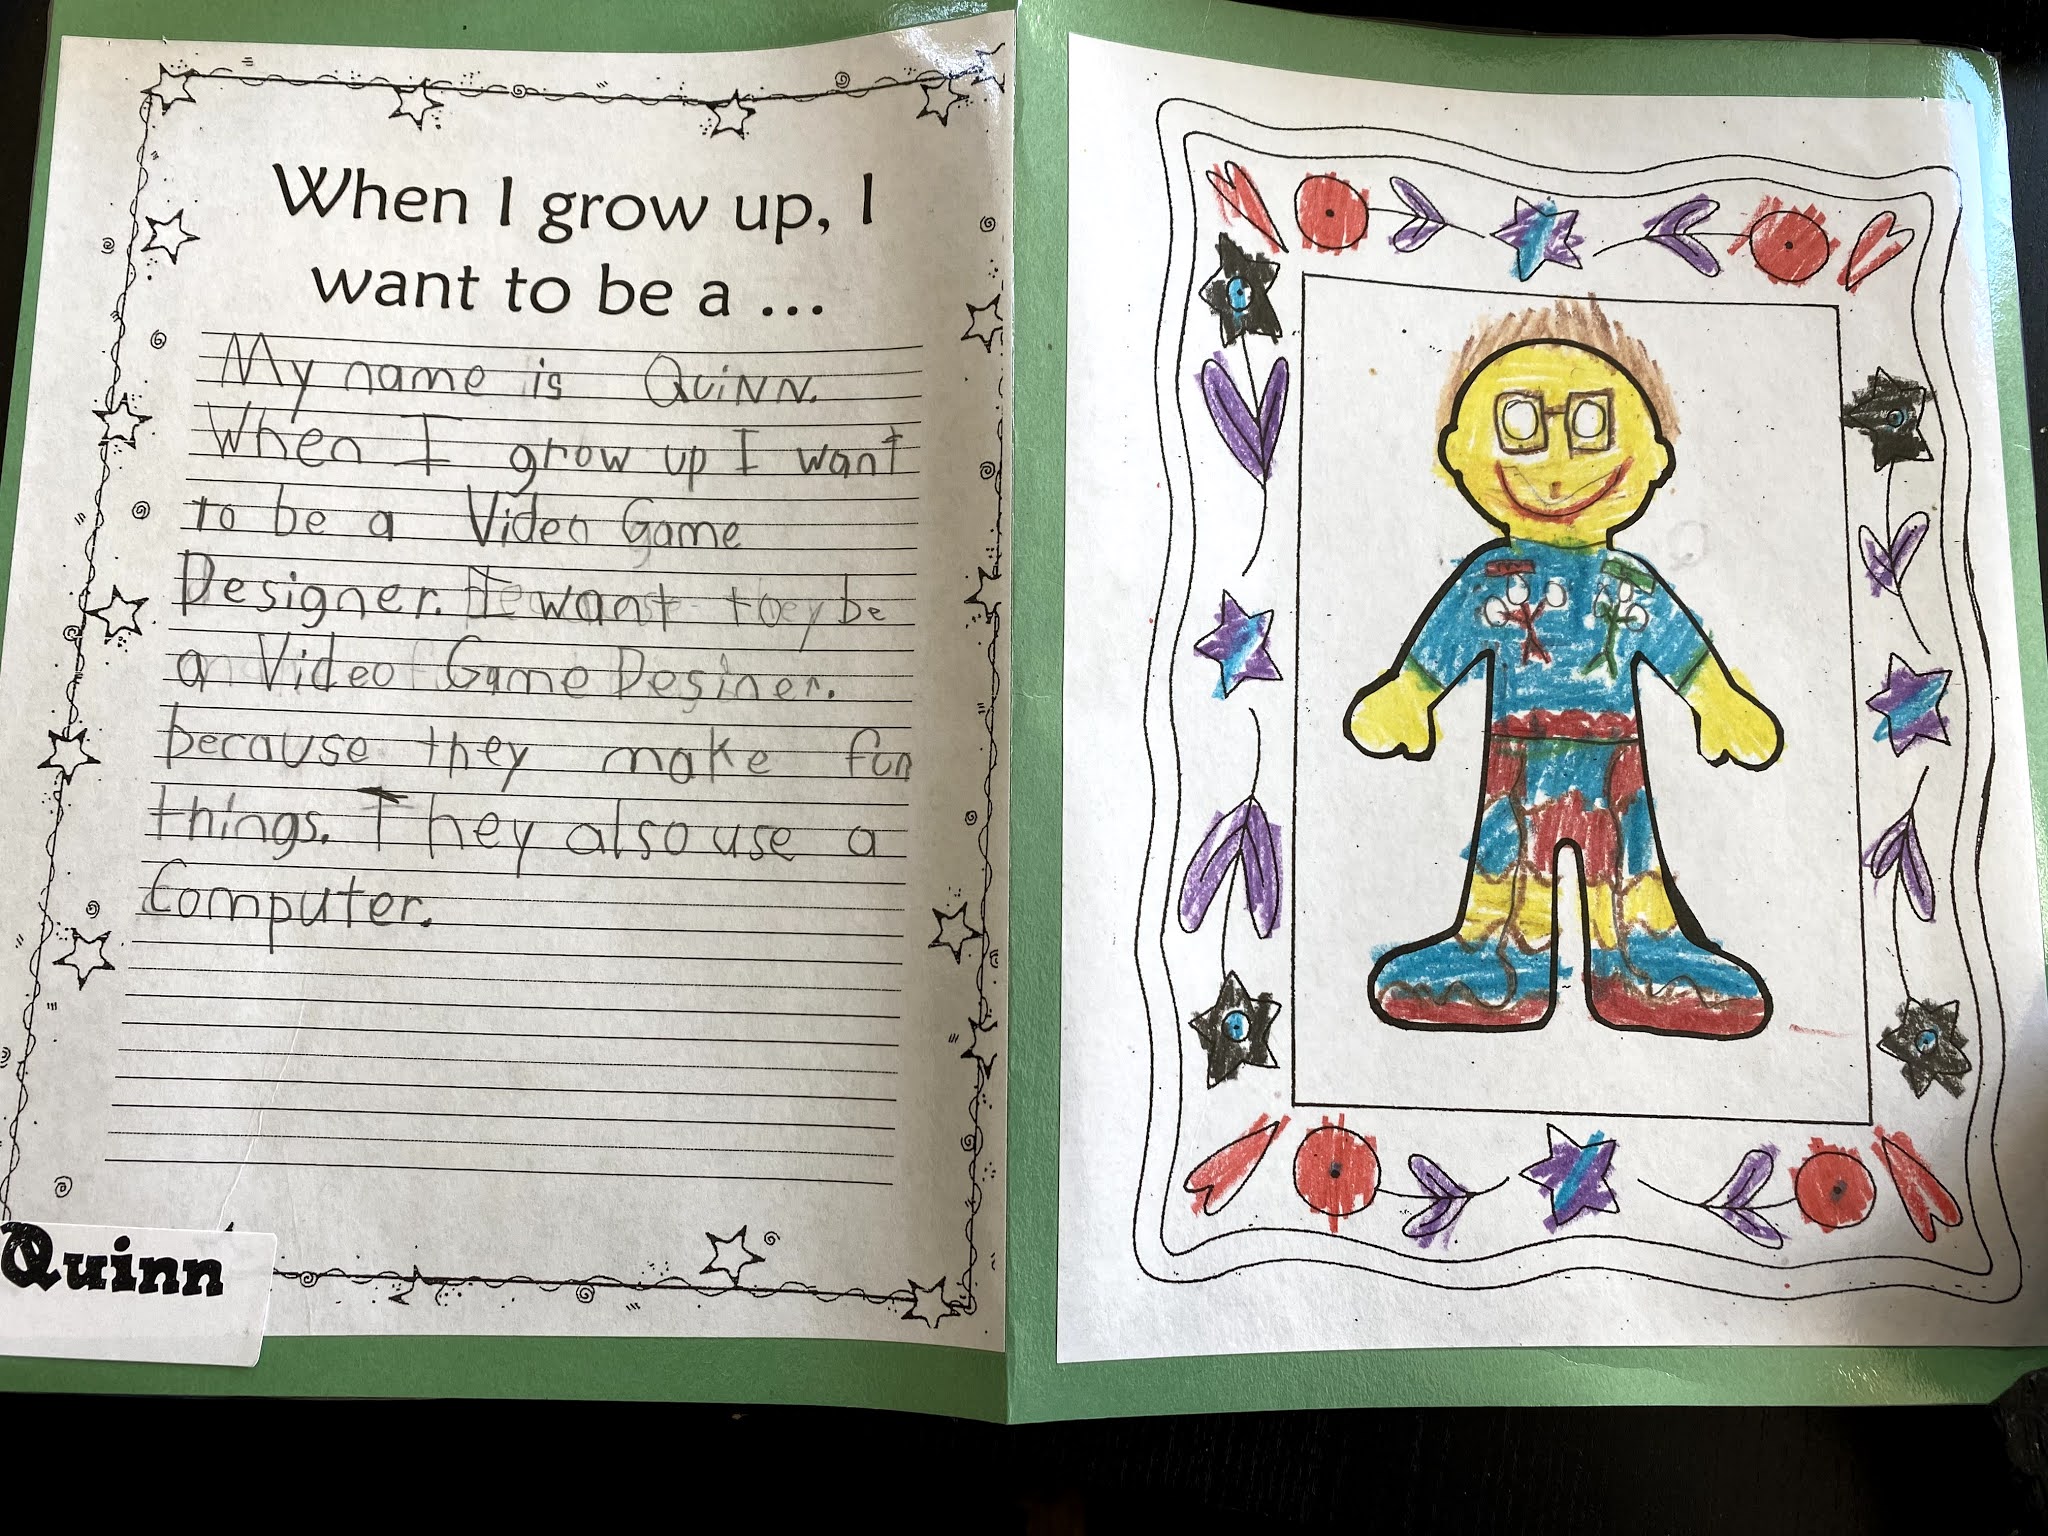 When I grow up, I
want to be a ...
My name is Quinn.
When I grow up I want
to be a Video Game
Designer. I want to be
a Video Game Desiner.
because they make fun
things. They also use a
Computer.
Quinn